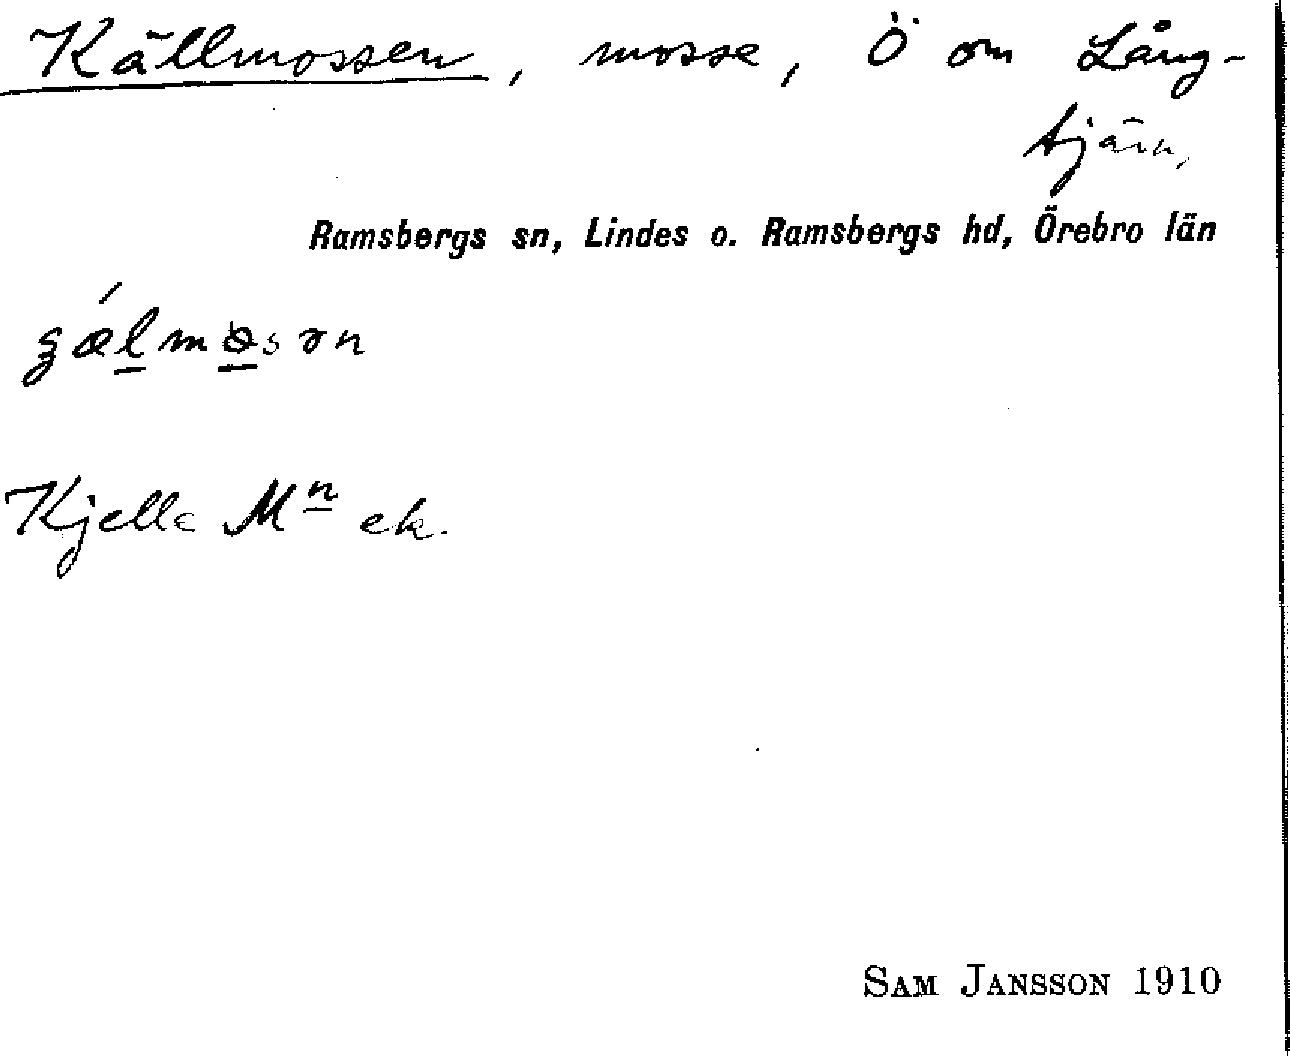 Källmossen, mosse, Ö om Lång-
tjärn,
Ramsbergs sn, Lindes o. Ramsbergs hd, Örebro län
Kjelle Mn ek.
SAM JANSSON 1910